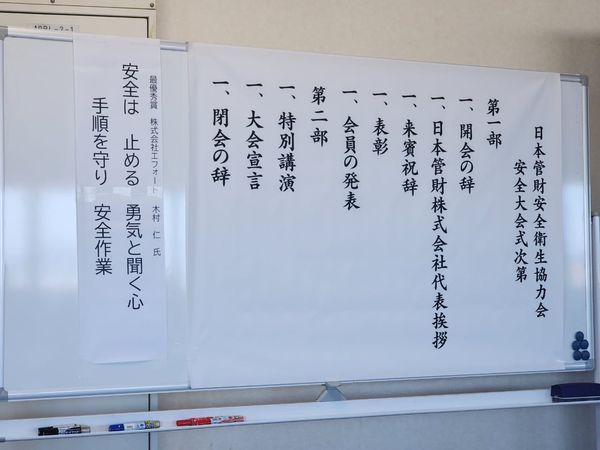 日本管財安全衛生協力会
安全大会式次第
第一部
一、開会の辞
一、日本管財株式会社代表挨拶
一、来賓祝辞
一、表彰
一、会員の発表
第二部
一、特別講演
一、大会宣言
一、閉会の辞
最優秀賞 株式会社エフォート 木村 仁 氏
安全は 止める 勇気と聞く心
手順を守り 安全作業